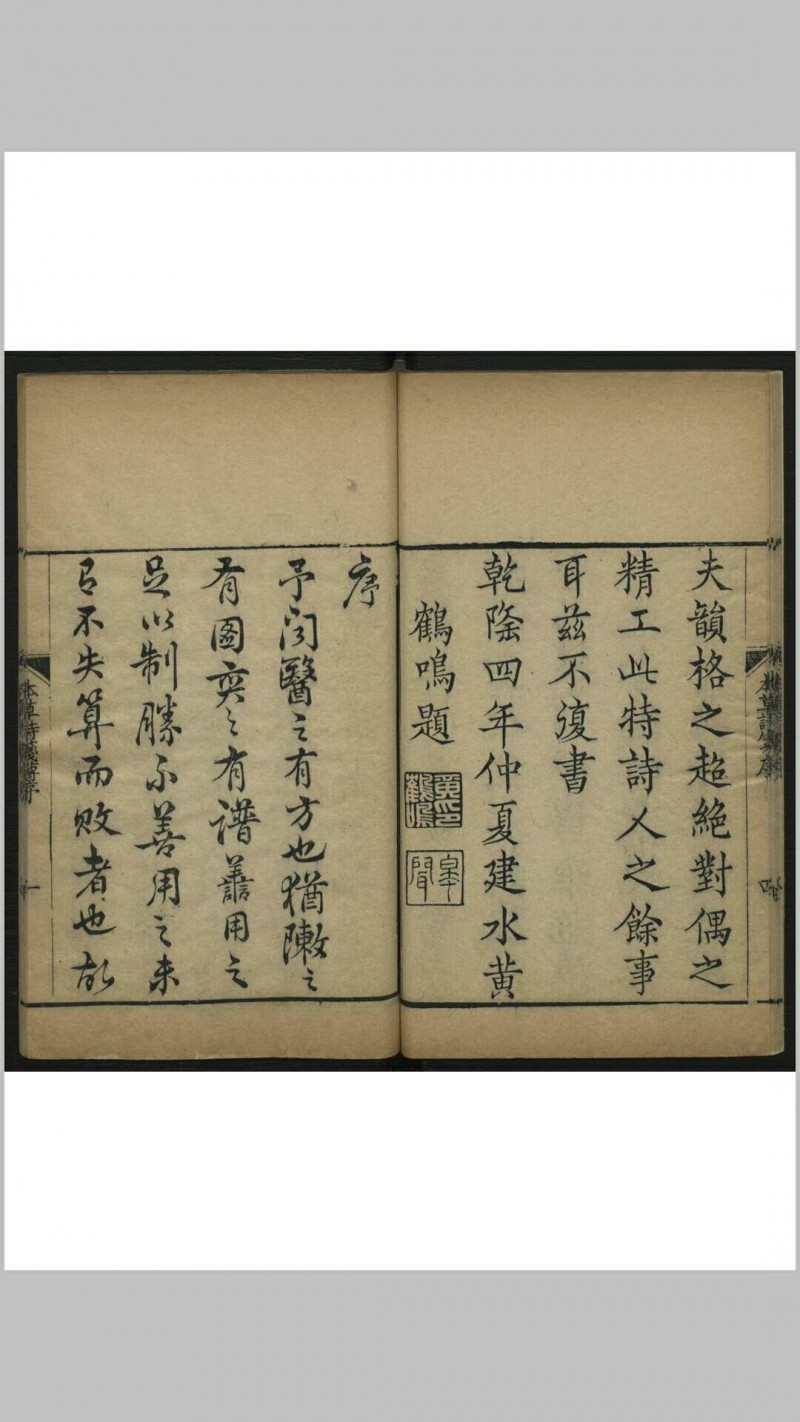 夫韻格之超絶對偶之
精工此特詩人之餘事
耳茲不復書
乾隆四年仲夏建水黄
鶴鳴題
黄印鶴鳴
皋聞
本草詩箋序
四
序
予閱醫之有方也猶陣之
有圖奕之有譜善用之
足以制勝不善用之未
有不失算而敗者也故
本草詩箋
序
一